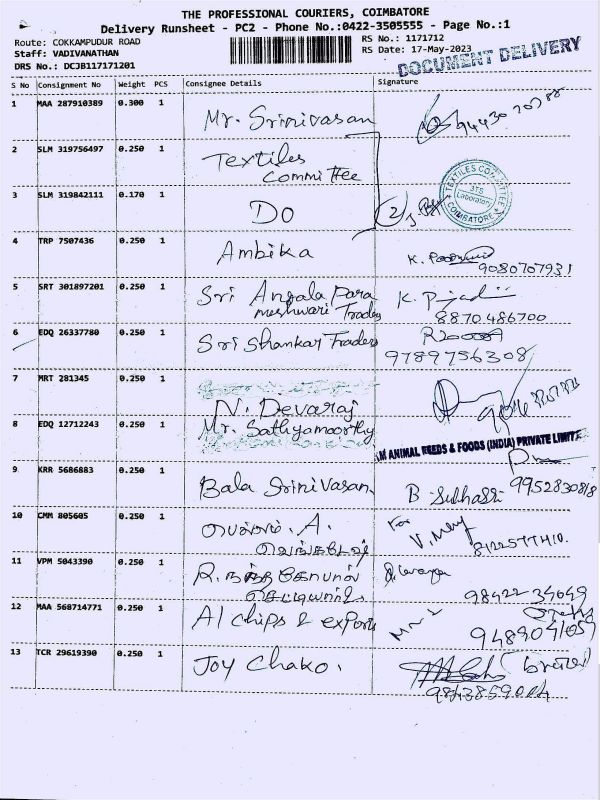 THE PROFESSIONAL COURIERS, COIMBATORE
Delivery Runsheet - PC2 - Phone No.:0422-3505555 - Page No.:1
Route: COKKAMPUDUR ROAD RS No.: 1171712
Staff: VADIVANATHAN RS Date: 17-May-2023
DRS No.: DCJB117171201 DOCUMENT DELIVERY
S No Consignment No Weight PCS Consignee Details Signature
1 MAA 287910389 0.300 1 Mr. Srinivasan
2 SLM 319756497 0.250 1 Textiles
Committee
TEXTILES COMMITTEE
Laboratory
COIMBATORE
3 SLM 319842111 0.170 1 Do
4 TRP 7507436 0.250 1 Ambika
9080707931
5 SRT 301897201 0.250 1 Sri Angala Para
meshwari Traders
8870486700
6 EDQ 26337780 0.250 1 Sri Shankar Traders
9789756308
7 MRT 281345 0.250 1 N. Devaraj
8 EDQ 12712243 0.250 1 Mr. Sathyamoorthy
ANIMAL FEEDS & FOODS (INDIA) PRIVATE LIMITE
9 KRR 5686883 0.250 1 Bala Srinivasan 9952830818
10 CMM 805605 0.250 1 For
11 VPM 5043390 0.250 1
12 MAA 568714771 0.250 1 A1 chips & exports
9489041059
13 TCR 29619390 0.250 1 Joy Chako.
9843859004